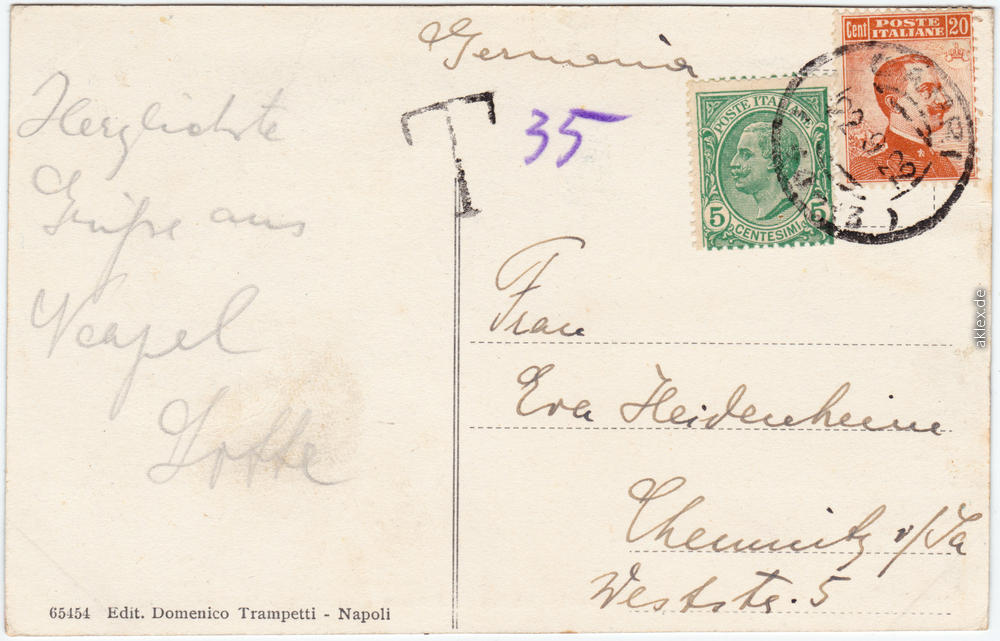 Germania
Herzlichste
Grüße aus
Neapel
Lotte
T
35
POSTE ITALIANE
5 5
CENTESIMI
Cent POSTE 20
ITALIANE
CAPRI
Frau
Eva Heidenheim
Chemnitz i/Sa
Weststr. 5
65454 Edit. Domenico Trampetti - Napoli
aklex.de